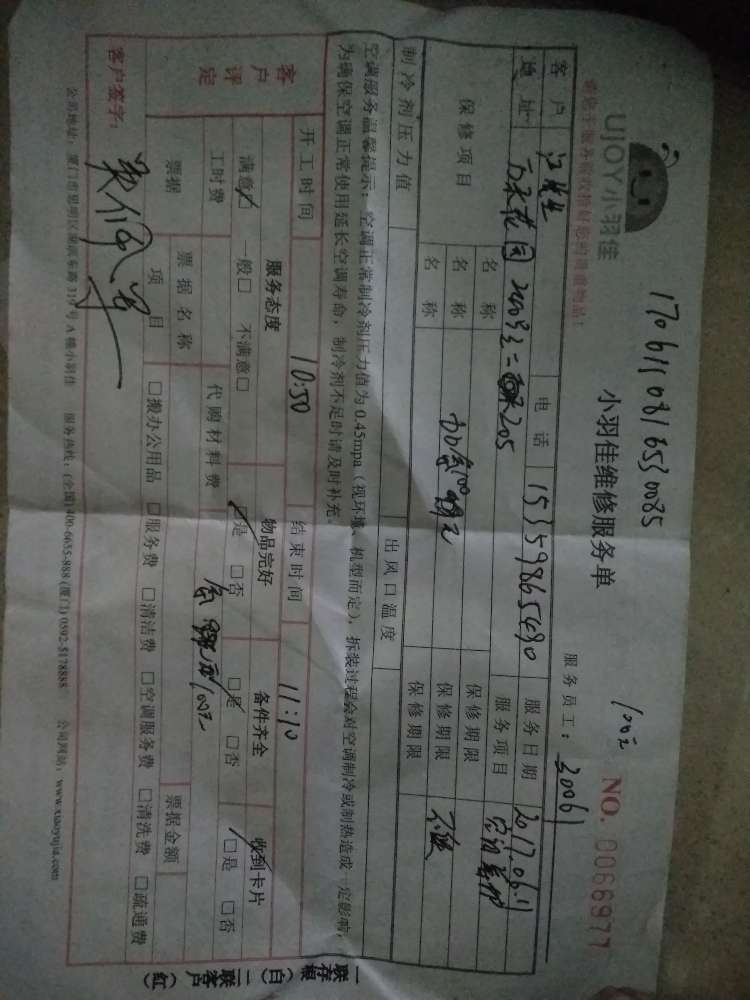 170611081653 0085
100元
UJOY小羽佳
小羽佳维修服务单
NO. 0066977
请您于服务前收拾好您的贵重物品!
服务员工: 30061
客户 江先生 电话 15359865490 服务日期 2017.06.11
地址 2205 服务项目 空调
保修项目 名称 保修期限
名称 加氟100元 保修期限
名称 保修期限 不保
制冷剂压力值 出风口温度
空调服务温馨提示:空调正常制冷剂压力值为0.45mpa(视环境、机型而定),拆装过程会对空调制冷或制热造成一定影响,
为确保空调正常使用延长空调寿命,制冷剂不足时请及时补充。
开工时间 10:50 结束时间 11:10
客户评定 服务态度 物品完好 备件齐全 收到卡片
满意□ 一般□ 不满意□ □是 □否 □是 □否 □是 □否
工时费 代购材料费 100元
票据 票据名称 票据金额
项目 □搬办公用品 □服务费 □清洁费 □空调服务费 □清洗费 □疏通费
客户签字:
公司地址:厦门市思明区 319号A楼小羽佳 服务热线:(全国)400-6655-888 (厦门) 0592-5178888 公司网站:www.xiaoyujia.com
一联存根(白) 二联客户(红)